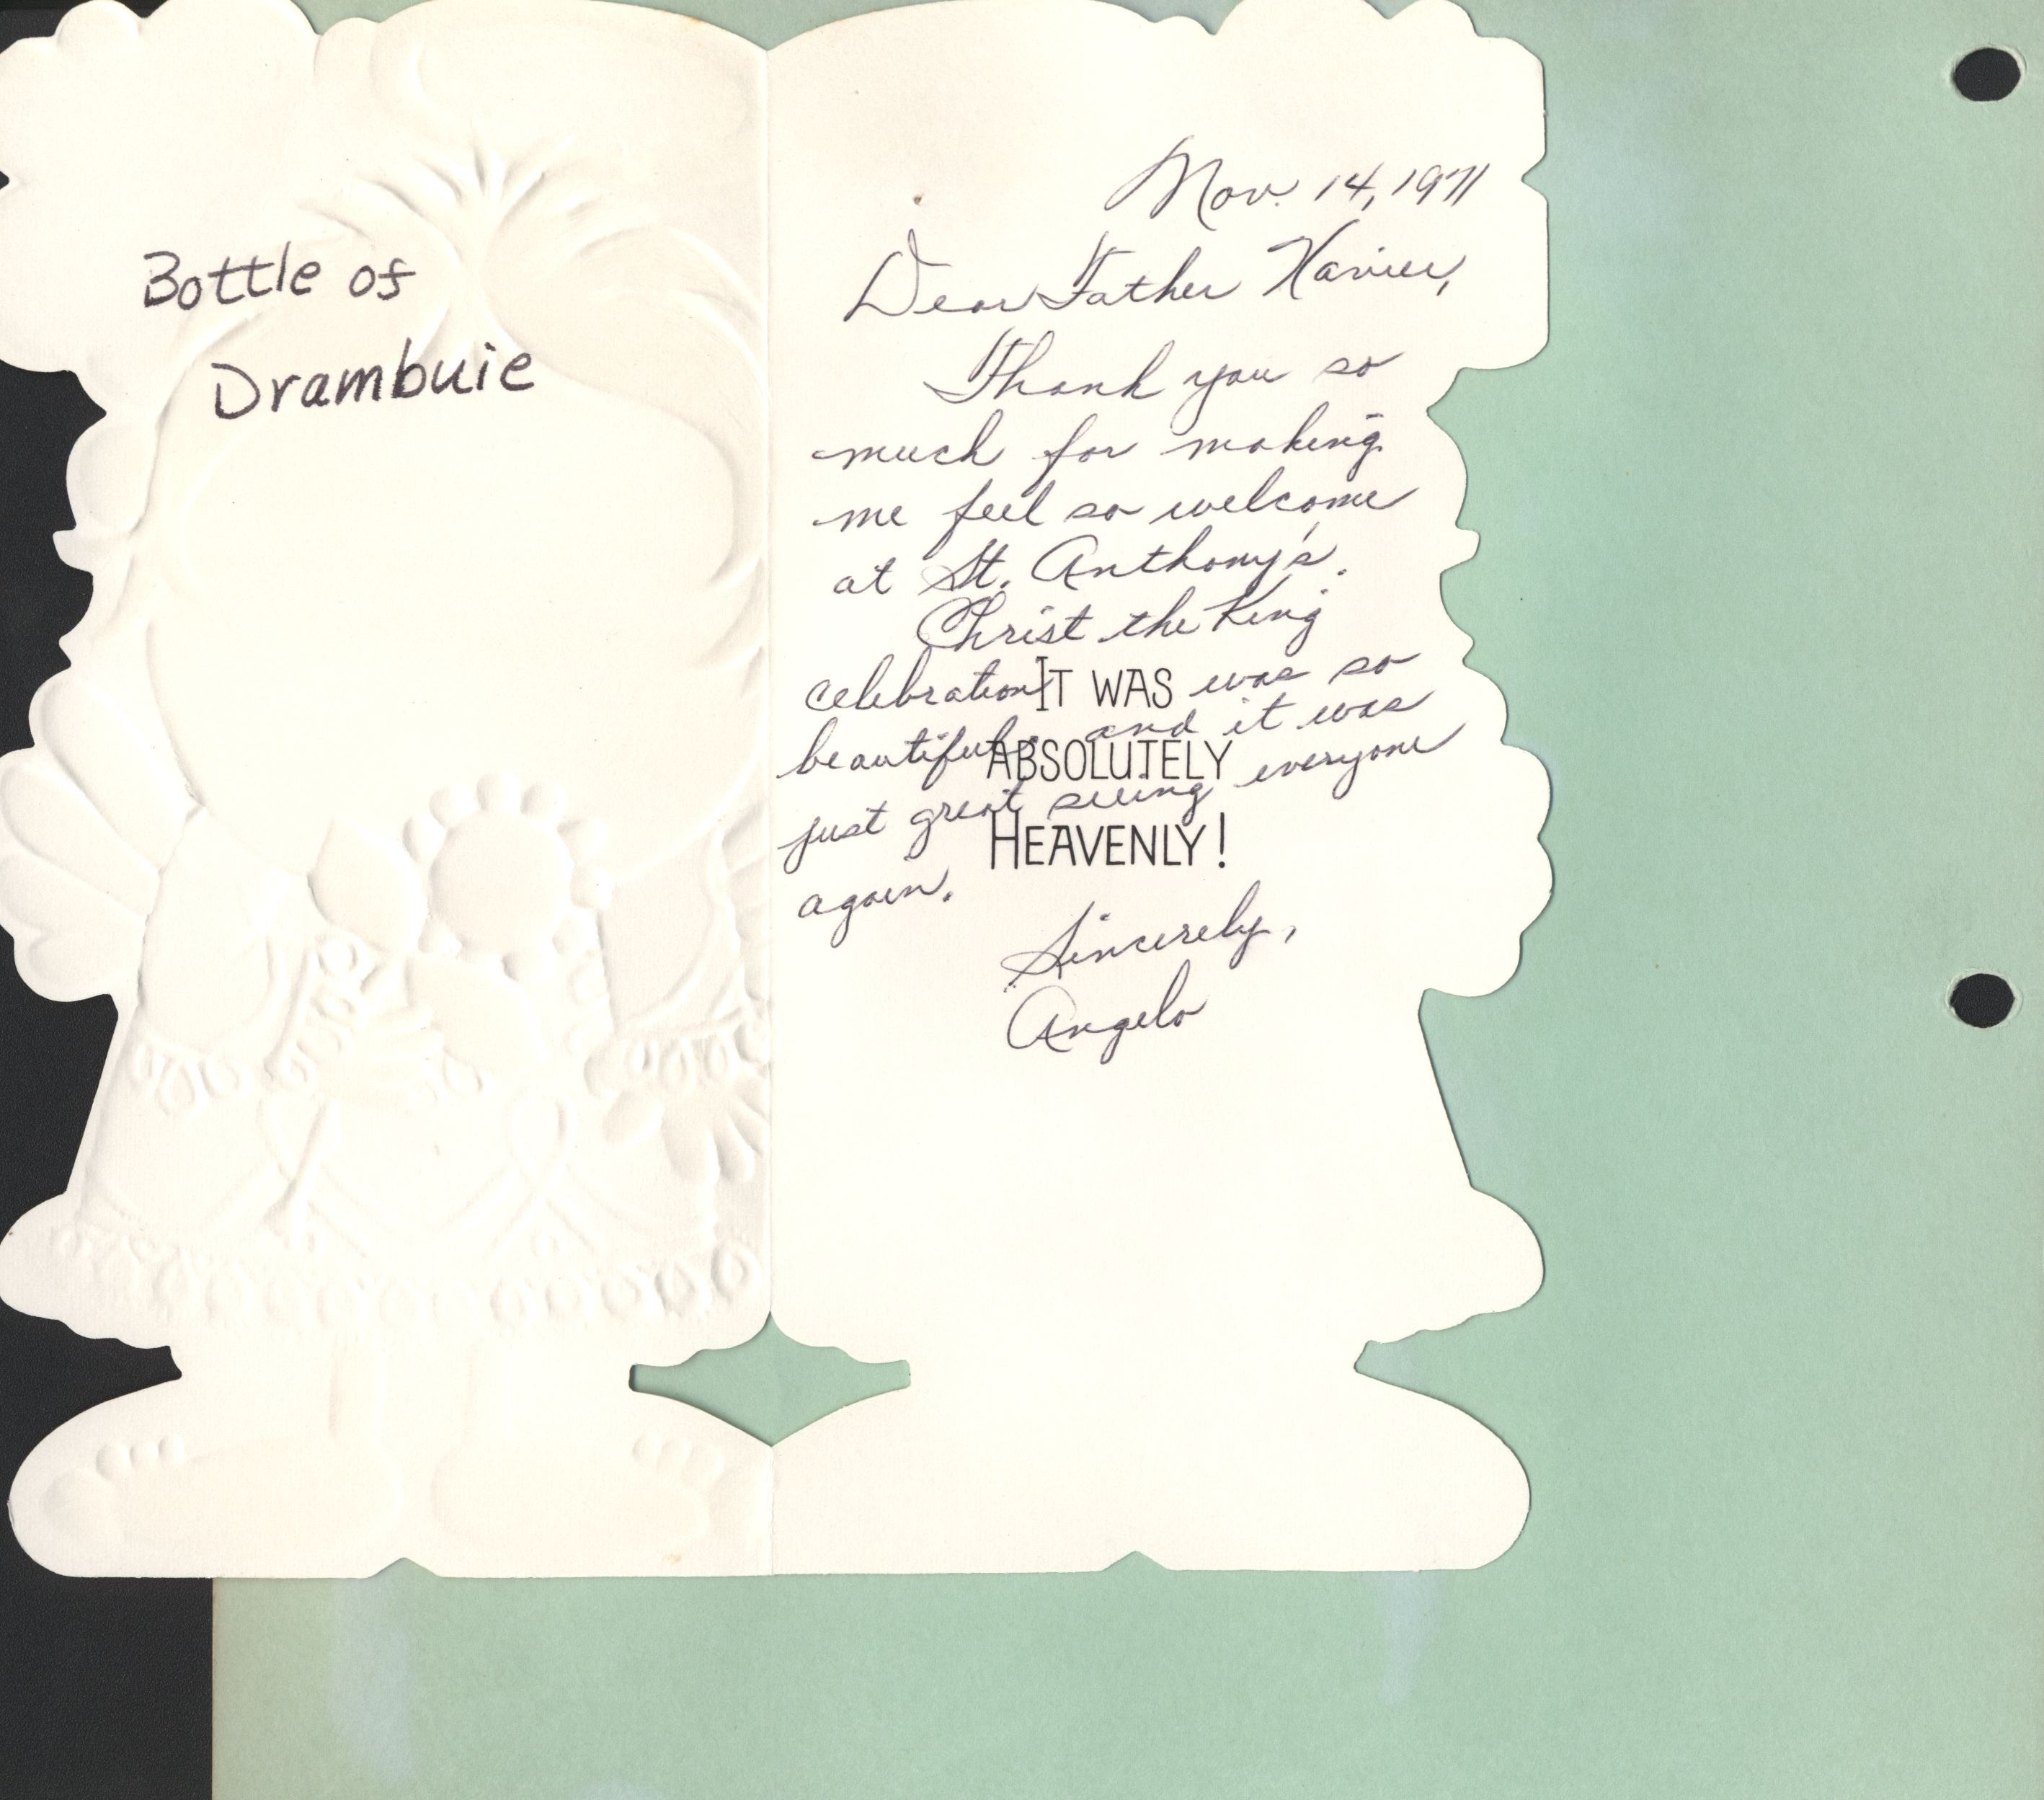 Bottle of
Drambuie
Nov. 14, 1971
Dear Father Xavier,
Thank you so
much for making
me feel so welcome
at St. Anthony's.
Christ the King
celebration IT WAS was so
beautiful, and it was
ABSOLUTELY
just great seeing everyone
HEAVENLY!
again.
Sincerely,
Angelo